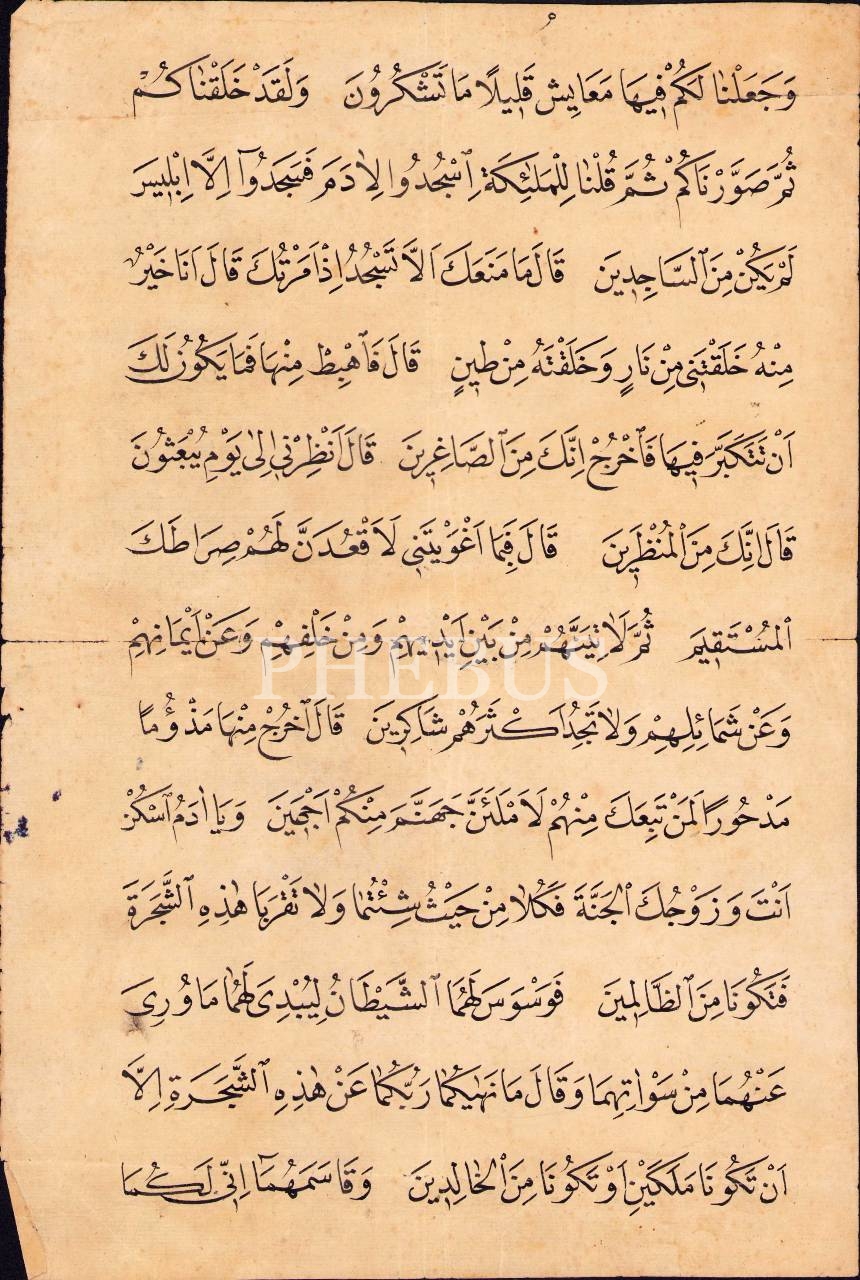 وَجَعَلْنَا لَكُمْ فِيهَا مَعَايِشَ قَلِيلًا مَا تَشْكُرُونَ وَلَقَدْ خَلَقْنَاكُمْ
ثُمَّ صَوَّرْنَاكُمْ ثُمَّ قُلْنَا لِلْمَلٰئِكَةِ ٱسْجُدُوا لِاٰدَمَ فَسَجَدُوٓا اِلَّا اِبْلِيسَ
لَمْ يَكُنْ مِنَ ٱلسَّاجِدِينَ قَالَ مَا مَنَعَكَ اَلَّا تَسْجُدَ اِذْ اَمَرْتُكَ قَالَ اَنَا خَيْرٌ
مِنْهُ خَلَقْتَنِى مِنْ نَارٍ وَخَلَقْتَهُ مِنْ طِينٍ قَالَ فَٱهْبِطْ مِنْهَا فَمَا يَكُونُ لَكَ
اَنْ تَتَكَبَّرَ فِيهَا فَٱخْرُجْ اِنَّكَ مِنَ ٱلصَّاغِرِينَ قَالَ اَنْظِرْنِى اِلٰى يَوْمِ يُبْعَثُونَ
قَالَ اِنَّكَ مِنَ ٱلْمُنْظَرِينَ قَالَ فَبِمَا اَغْوَيْتَنِى لَاَقْعُدَنَّ لَهُمْ صِرَاطَكَ
ٱلْمُسْتَقِيمَ ثُمَّ لَاٰتِيَنَّهُمْ مِنْ بَيْنِ اَيْدِيهِمْ وَمِنْ خَلْفِهِمْ وَعَنْ اَيْمَانِهِمْ
PHEBUS
وَعَنْ شَمَائِلِهِمْ وَلَا تَجِدُ اَكْثَرَهُمْ شَاكِرِينَ قَالَ ٱخْرُجْ مِنْهَا مَذْؤُمًا
مَدْحُورًا لَمَنْ تَبِعَكَ مِنْهُمْ لَاَمْلَئَنَّ جَهَنَّمَ مِنْكُمْ اَجْمَعِينَ وَيَا اٰدَمُ ٱسْكُنْ
اَنْتَ وَزَوْجُكَ ٱلْجَنَّةَ فَكُلَا مِنْ حَيْثُ شِئْتُمَا وَلَا تَقْرَبَا هٰذِهِ ٱلشَّجَرَةَ
فَتَكُونَا مِنَ ٱلظَّالِمِينَ فَوَسْوَسَ لَهُمَا ٱلشَّيْطَانُ لِيُبْدِىَ لَهُمَا مَا وُرِىَ
عَنْهُمَا مِنْ سَوْاٰتِهِمَا وَقَالَ مَا نَهٰيكُمَا رَبُّكُمَا عَنْ هٰذِهِ ٱلشَّجَرَةِ اِلَّا
اَنْ تَكُونَا مَلَكَيْنِ اَوْ تَكُونَا مِنَ ٱلْخَالِدِينَ وَقَاسَمَهُمَٓا اِنِّى لَكُمَا